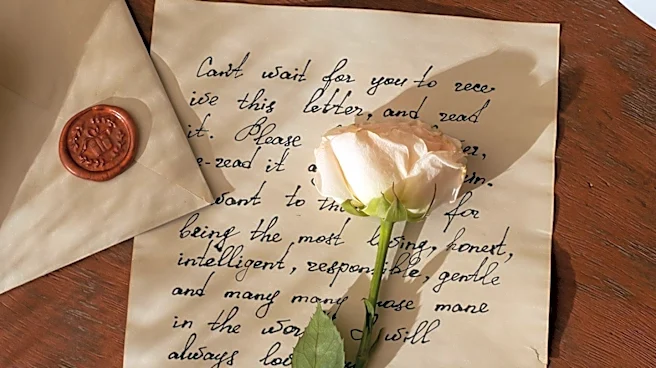 Can't wait for you to rece
ive this letter, and read
it. Please
e-read it a
want to th for
being the most loving, honest,
intelligent, responsible, gentle
and many many mane
in the wor I will
always lov